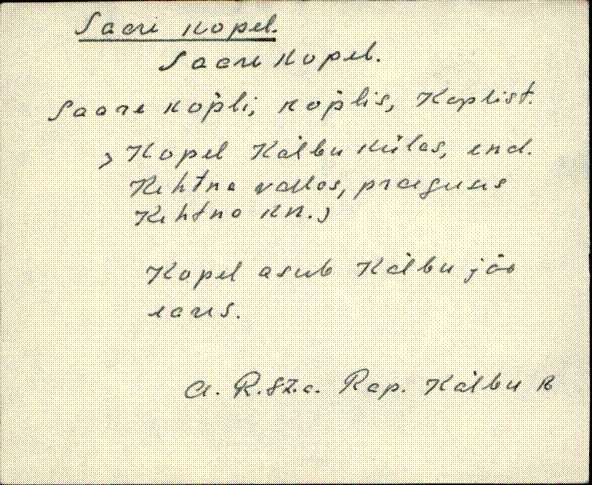 Saare kopel.
Saare kopel.
Saare kopli, koplis, koplist.
, Kopel Kälbu külas, end.
Kehtna vallas, praeguses
Kehtna kn.,
Kopel asub Kälbu jõe
ääres.
Rap. Kälbu k